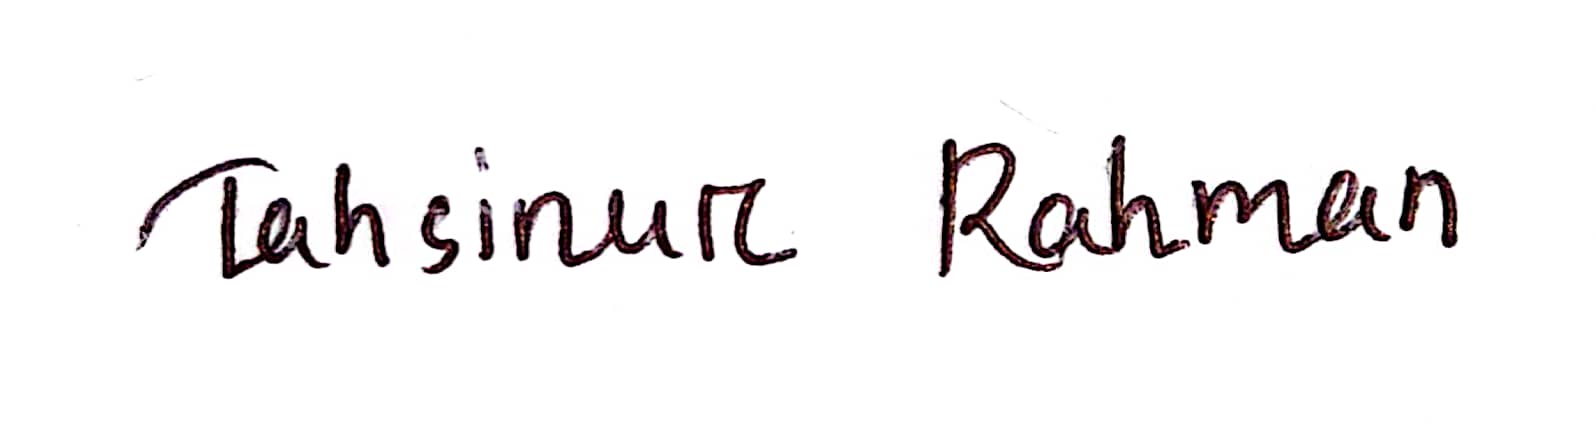 Tahsinur Rahman